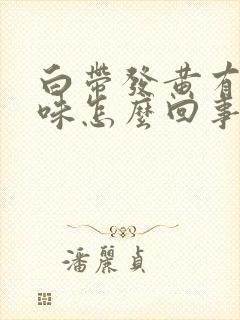 白帶發黄有
味怎麼回事
潘麗貞